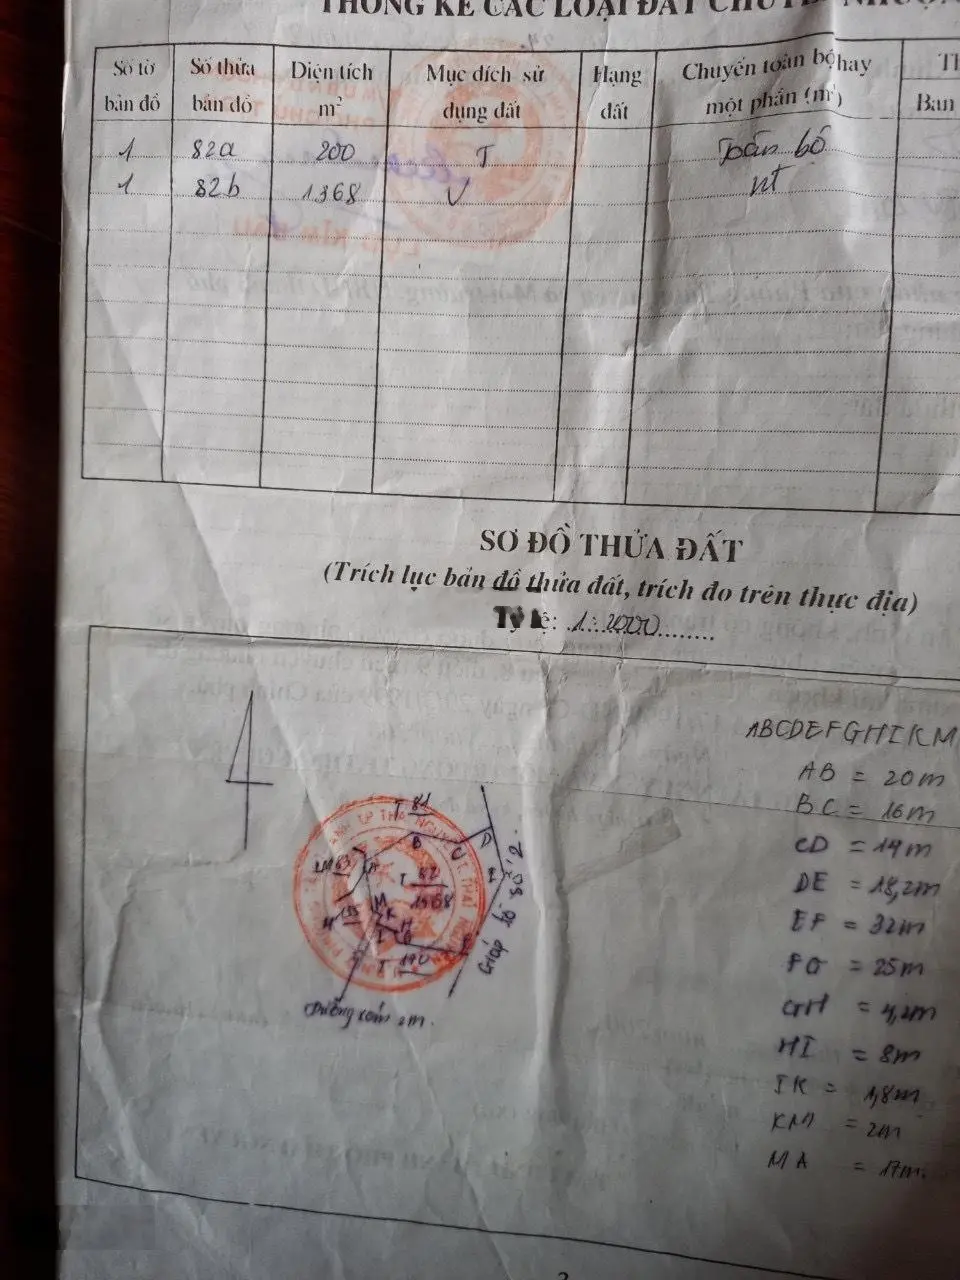 THỐNG KÊ CÁC LOẠI ĐẤT CHUYỂN NHƯỢNG
Số tờ bản đồ
Số thửa bản đồ
Diện tích m²
Mục đích sử dụng đất
Hạng đất
Chuyển toàn bộ hay một phần (m²)
Ban
1 82a 200 T Toàn bộ
1 82b 1368 V nt
SƠ ĐỒ THỬA ĐẤT
(Trích lục bản đồ thửa đất, trích đo trên thực địa)
Tỷ lệ: 1:2000
ABCDEFGHIKM
AB = 20m
BC = 16m
CD = 14m
DE = 18,2m
EF = 32m
FG = 25m
GH = 4,2m
HI = 8m
IK = 1,8m
KM = 2m
MA = 17m
T 81
B
D
T 82
1568
M
K
H
T 190
Giáp tờ số 2
Đường xóm 2m.